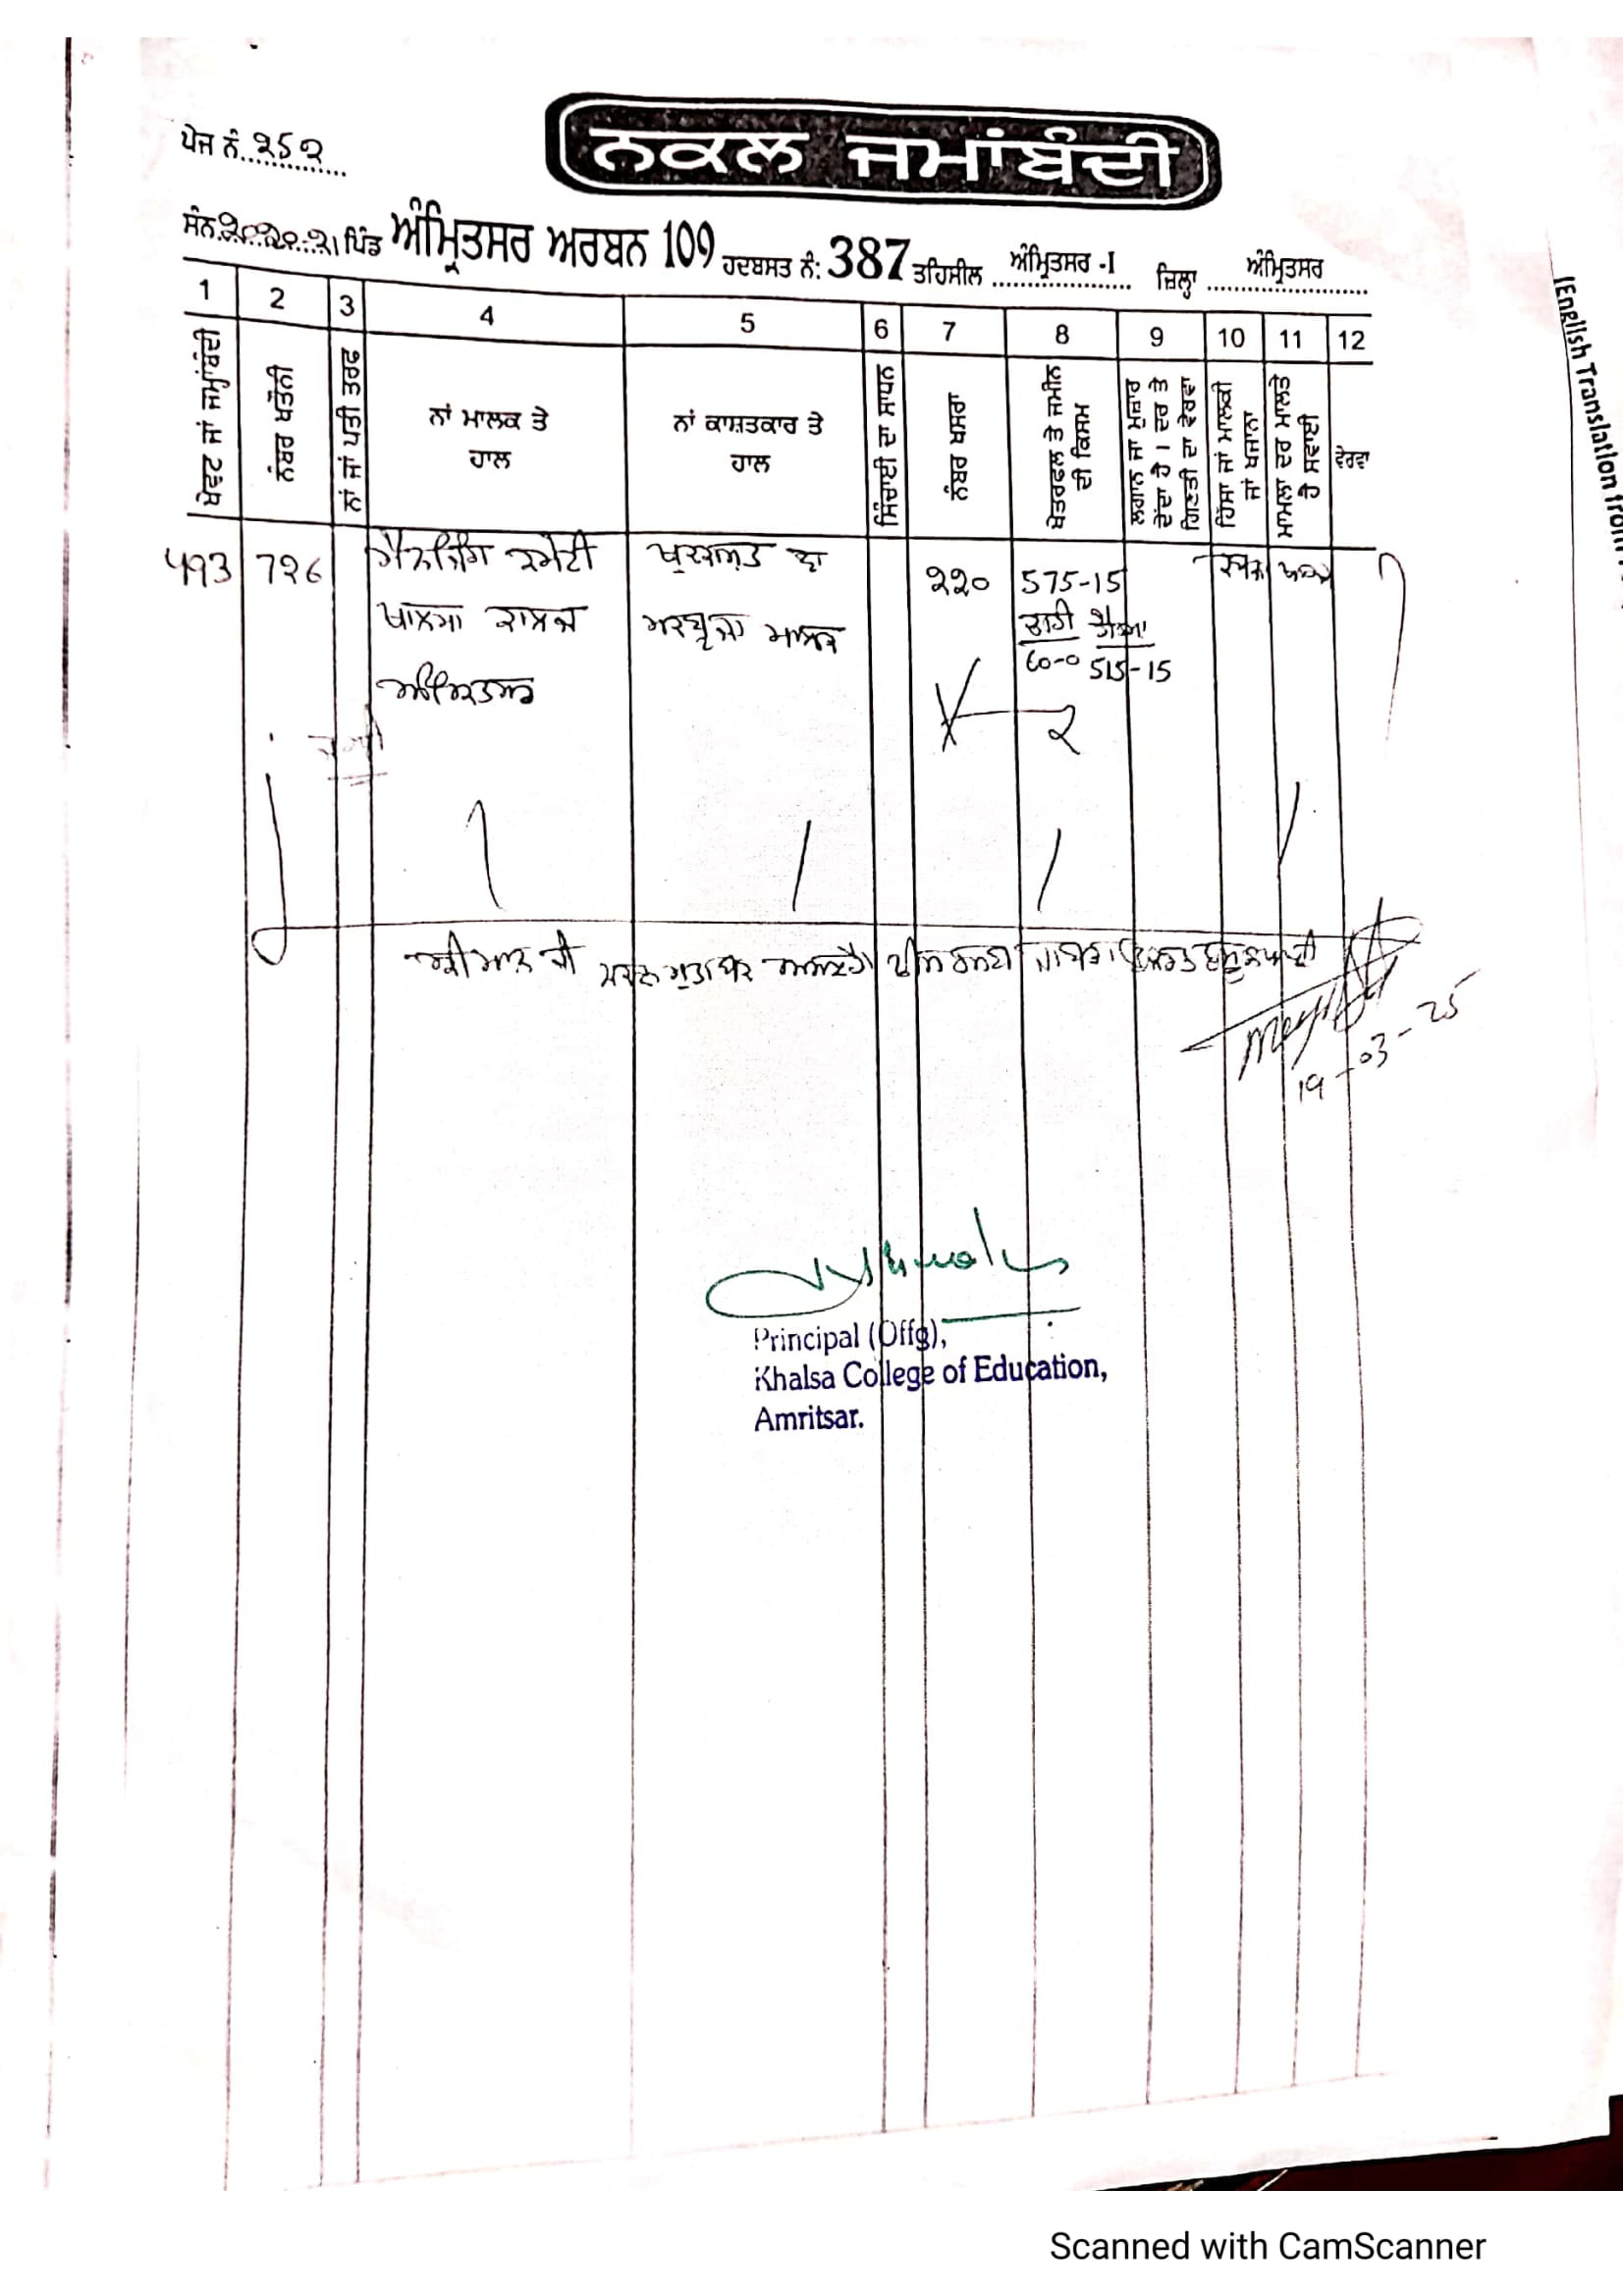 ਪੇਜ ਨੰ. ੨੨੨
ਨਕਲ ਜਮਾਂਬੰਦੀ
ਸੰਨ ੨੦੨੦-੨੧ ਪਿੰਡ ਅੰਮ੍ਰਿਤਸਰ ਅਰਬਨ 109 ਹਦਬਸਤ ਨੰ: 387 ਤਹਿਸੀਲ ਅੰਮ੍ਰਿਤਸਰ -I ਜ਼ਿਲ੍ਹਾ ਅੰਮ੍ਰਿਤਸਰ
1 2 3 4 5 6 7 8 9 10 11 12
ਖੇਵਟ ਜਾਂ ਜਮ੍ਹਾਂਬੰਦੀ
ਨੰਬਰ ਖਤੌਨੀ
ਨਾਂ ਜਾਂ ਪਤੀ ਤਰਫ
ਨਾਂ ਮਾਲਕ ਤੇ
ਹਾਲ
ਨਾਂ ਕਾਸ਼ਤਕਾਰ ਤੇ
ਹਾਲ
ਸਿੰਚਾਈ ਦਾ ਸਾਧਨ
ਨੰਬਰ ਖਸਰਾ
ਖੇਤਰਫਲ ਤੇ ਜਮੀਨ
ਦੀ ਕਿਸਮ
ਲਗਾਨ ਜਾ ਮੁਜ਼ਾਰ
ਦੇਂਦਾ ਹੈ। ਦਰ ਤੇ
ਗਿਣਤੀ ਦਾ ਵੇਰਵਾ
ਹਿੱਸਾ ਜਾਂ ਮਾਲਕੀ
ਜਾਂ ਖਜਾਨਾ
ਮਾਮਲਾ ਦਰ ਮਾਲਤੇ
ਹੈ ਸਵਾਈ
ਵੇਰਵਾ
493 726 ਮੈਨੇਜਿੰਗ ਕਮੇਟੀ ਖੁਦਕਾਸ਼ਤ ਵਾ ੨੨੦ 575-15
ਖਾਲਸਾ ਕਾਲਜ ਮਕਬੂਜਾ ਮਾਲਕ
ਅੰਮ੍ਰਿਤਸਰ 60-0 515-15
ਸ੍ਰੀ ਮਾਨ ਜੀ
19-03-25
Principal (Offg),
Khalsa College of Education,
Amritsar.
(English Translation from
Scanned with CamScanner